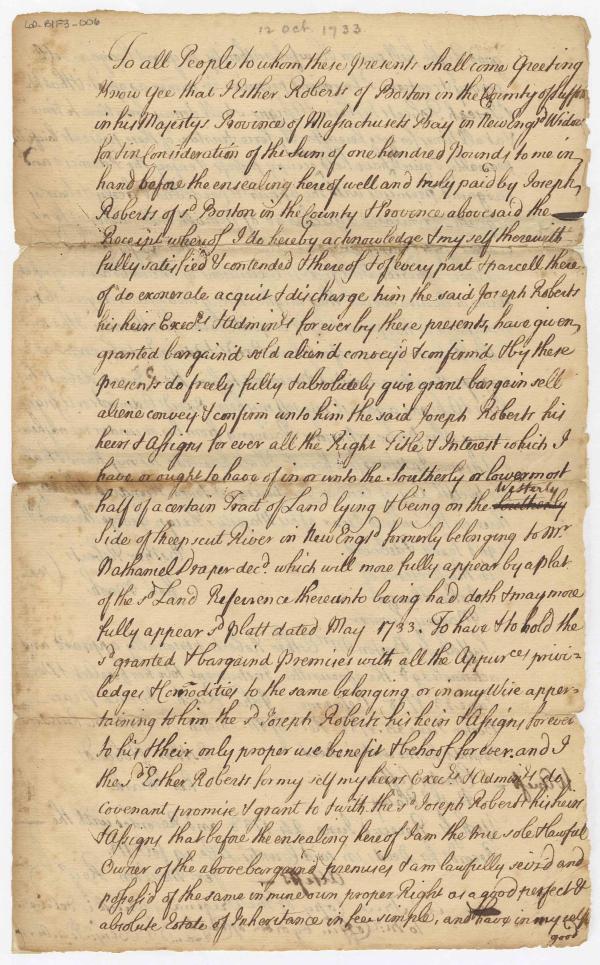 60-B1F3-006
12 Oct. 1733
To all People to whom these Presents shall come Greeting
Know Yee that I Esther Roberts of Boston in the County of Suffo
in his Majestys Province of Massachusets Bay in New Engld Widow
for & in Consideration of the Sum of one hundred Pounds to me in
hand before the ensealing here of well and truly paid by Joseph
Roberts of sd Boston in the County & Province abovesaid the
Receipt whereof I do hereby acknowledge & my self therewith
fully satisfied & contended & thereof & of every part & parcell there
of do exonerate acquit & discharge him the said Joseph Roberts
his heirs Execrs & Adminrs for ever by these presents, have given,
granted bargain'd sold aliend convey'd & confirm'd & by these
presents do freely fully & absolutely give grant bargain sell
aliene convey & confirm unto him the said Joseph Roberts his
heirs & Assigns for ever all the Right Title & Interest which I
have or ought to have of in or unto the Southerly or lowermost
Westerly
half of a certain Tract of Land lying & being on the Southerly
Side of Keepscut River in New Engld formerly belonging to Mr
Nathaniel Draper decd. which will more fully appear by a Plat
of the sd Land Referrence thereunto being had doth & may more
fully appear sd Platt dated May 1733. To have & to hold the
sd granted & bargaind Premises with all the Appurces privi=
ledges & Comodities to the same belonging or in any Wise apper=
taining to him the sd Joseph Roberts his heirs & Assigns forever
to his & their only proper use benefit & behoof forever. and I
the sd Esther Roberts for my self my heirs Execrs & Adminrs do
covenant promise & grant to & with the sd Joseph Roberts his heirs
& Assigns that before the ensealing here of I am the true sole & lawful
Owner of the above bargain'd premises & am lawfully seiz'd and
possess'd of the same in mine own proper Right as a good perfect &
absolute Estate of Inheritance in fee simple, and have in my self
good